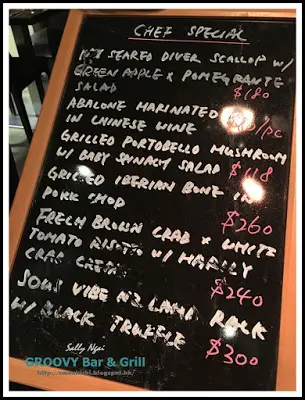 CHEF SPECIAL
SEARED DIVER SCALLOP W/
GREEN APPLE X POMEGRANTE
SALAD $180
ABALONE MARINATED
IN CHINESE WINE /PC
GRILLED PORTOBELLO MUSHROOM
W/ BABY SPINACH SALAD $118
GRILLED IBERIAN BONE IN
PORK CHOP
$260
FRECH BROWN CRAB X WHITE
TOMATO W/
CRAB
$240
SOUS VIBE NZ LAMB RACK
W/ BLACK TRUFFLE
$300
Sally Ngai
GROOVY Bar & Grill